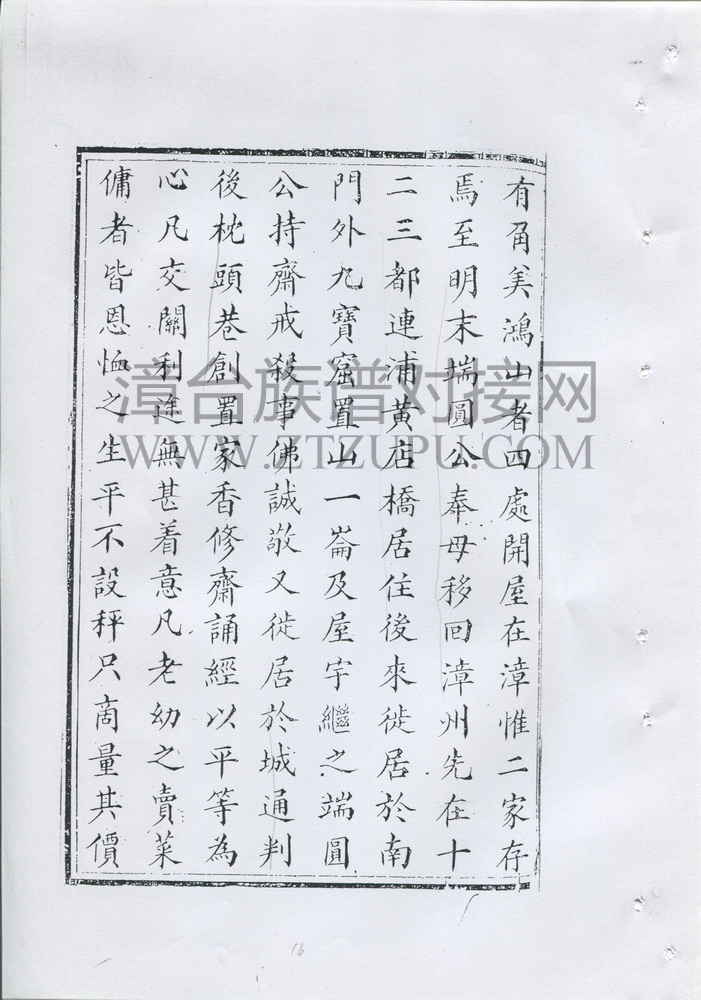 有角美鴻山者四處開屋在漳惟二家存
焉至明末端圓公奉母移回漳州先在十
二三都連浦黄店橋居住後來徙居於南
門外九寶窟置山一崙及屋宇繼之端圓
公持齋戒殺事佛誠敬又徙居於城通判
後枕頭巷創置家香修齋誦經以平等為
心凡交關利途無甚着意凡老幼之賣菜
傭者皆恩恤之生平不設秤只啇量其價
漳台族谱对接网
WWW.ZTZUPU.COM
16